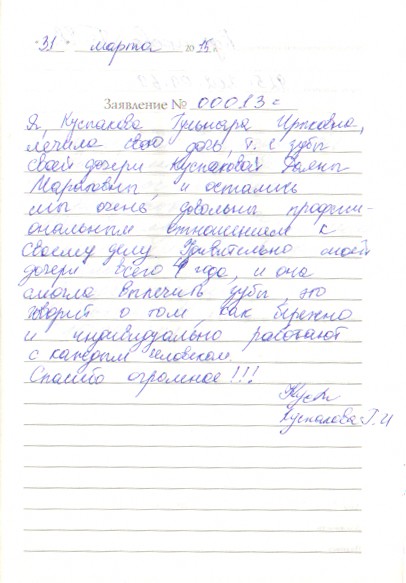 "31" марта 2015 г.
Заявление № 00013 с
Я, Куспакова Гульнара Ирыковна,
лечила свою дочь, т. е зубы
своей дочери Куспаковой Даяны
Маратовны, и остались
мы очень довольны професси-
ональным отношением к
своему делу. Удивительно моей
дочери всего 4 года, и она
смогла вылечить зубы, это
говорит о том, как бережно
и индивидуально работают
с каждым человеком.
Спасибо огромное!!!
Куспакова Г.И